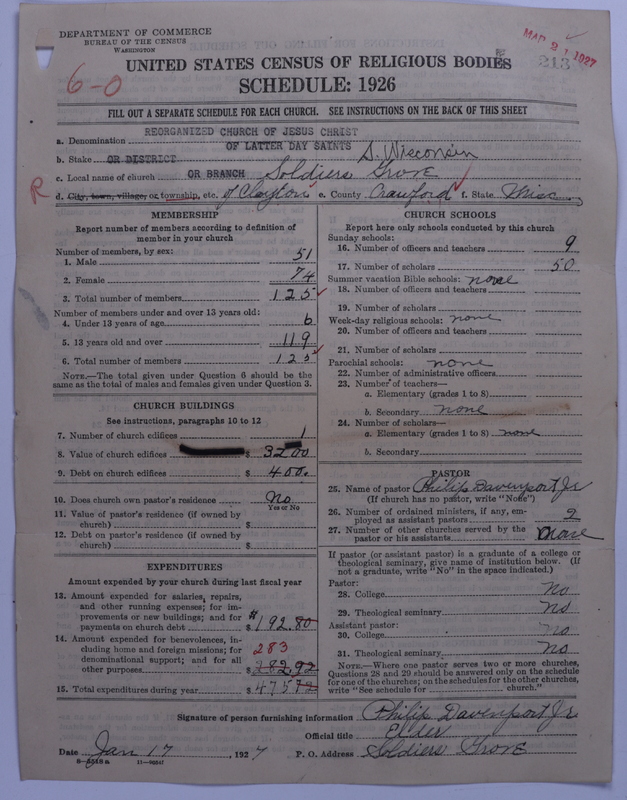 DEPARTMENT OF COMMERCE
BUREAU OF THE CENSUS
WASHINGTON
MAR 21 1927
213
6-0
UNITED STATES CENSUS OF RELIGIOUS BODIES
SCHEDULE: 1926
FILL OUT A SEPARATE SCHEDULE FOR EACH CHURCH. SEE INSTRUCTIONS ON THE BACK OF THIS SHEET
a. Denomination REORGANIZED CHURCH OF JESUS CHRIST
OF LATTER DAY SAINTS
b. Stake OR DISTRICT S. Wisconsin
c. Local name of church OR BRANCH Soldiers Grove
R
d. City, town, village, or township, etc. of Clayton e. County Crawford f. State Wisc
MEMBERSHIP
Report number of members according to definition of
member in your church
Number of members, by sex:
1. Male 51
2. Female 74
3. Total number of members 125
Number of members under and over 13 years old:
4. Under 13 years of age 6
5. 13 years old and over 119
6. Total number of members 125
NOTE.—The total given under Question 6 should be the
same as the total of males and females given under Question 3.
CHURCH BUILDINGS
See instructions, paragraphs 10 to 12
7. Number of church edifices 1
8. Value of church edifices $ 3200
9. Debt on church edifices $ 400.
10. Does church own pastor's residence No
Yes or No
11. Value of pastor's residence (if owned by
church) $
12. Debt on pastor's residence (if owned by
church) $
EXPENDITURES
Amount expended by your church during last fiscal year
13. Amount expended for salaries, repairs,
and other running expenses; for im-
provements or new buildings; and for
payments on church debt # 192.80
14. Amount expended for benevolences, in-
cluding home and foreign missions; for
denominational support; and for all
other purposes 283
$ 282.92
15. Total expenditures during year $ 475.72
CHURCH SCHOOLS
Report here only schools conducted by this church
Sunday schools:
16. Number of officers and teachers 9
17. Number of scholars 50
Summer vacation Bible schools: none
18. Number of officers and teachers
19. Number of scholars
Week-day religious schools: none
20. Number of officers and teachers
21. Number of scholars
Parochial schools: none
22. Number of administrative officers
23. Number of teachers—
a. Elementary (grades 1 to 8)
b. Secondary none
24. Number of scholars—
a. Elementary (grades 1 to 8) none
b. Secondary
PASTOR
25. Name of pastor Philip Davenport Jr
(If church has no pastor, write "None")
26. Number of ordained ministers, if any, em-
ployed as assistant pastors 2
27. Number of other churches served by the
pastor or his assistants None
If pastor (or assistant pastor) is a graduate of a college or
theological seminary, give name of institution below. (If
not a graduate, write "No" in the space indicated.)
Pastor:
28. College No
29. Theological seminary No
Assistant pastor:
30. College No
31. Theological seminary No
NOTE.—Where one pastor serves two or more churches,
Questions 28 and 29 should be answered only on the schedule
for one of the churches; on the schedules for the other churches,
write "See schedule for church."
Signature of person furnishing information Philip Davenport Jr
Official title Elder
Date Jan 17, 1927 P. O. Address Soldiers Grove